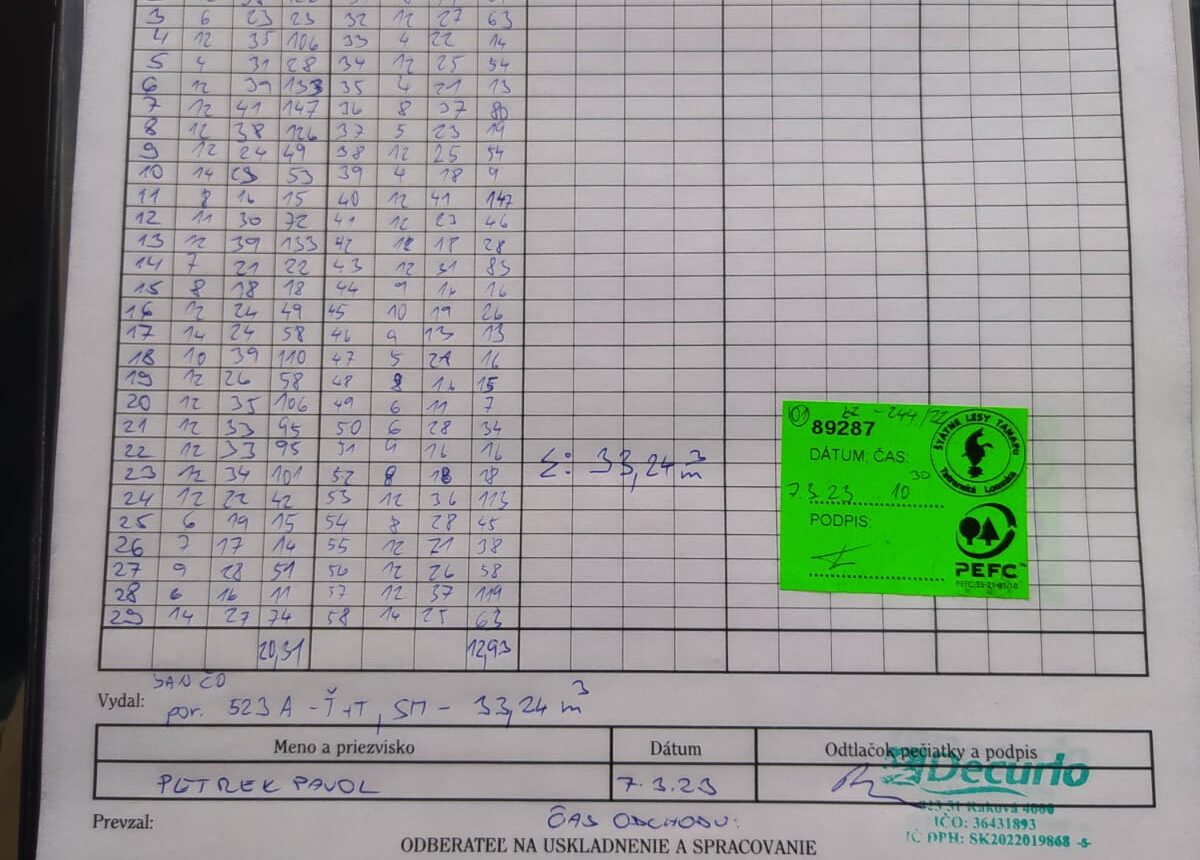 3 6 23 23 32 12 27 63
4 12 35 106 33 4 22 14
5 4 31 28 34 12 25 54
6 12 39 133 35 4 21 13
7 12 41 147 36 8 37 80
8 12 38 126 37 5 23 19
9 12 24 49 38 12 25 54
10 14 23 53 39 4 18 9
11 8 16 15 40 12 41 147
12 11 30 72 41 12 23 46
13 12 39 133 42 12 18 28
14 7 21 22 43 12 31 83
15 8 18 18 44 9 16 16
16 12 24 49 45 10 19 26
17 14 24 58 46 9 13 13
18 10 39 110 47 5 21 16
19 12 26 58 48 8 16 15
20 12 35 106 49 6 11 7
21 12 33 95 50 6 28 34
22 12 33 95 51 9 16 16
23 12 34 101 52 8 18 18
24 12 22 42 53 12 36 113
25 6 19 15 54 8 28 45
26 7 17 14 55 12 21 38
27 9 28 51 56 12 26 58
28 6 16 11 57 12 37 119
29 14 27 74 58 14 25 63
20,31 12,93
Σ: 33,24 m³
01 -244/22
89287
DÁTUM; ČAS:
7.3.23 10 30
PODPIS:
ŠTÁTNE LESY TANAPu
Tatranská Lomnica
PEFC
JAN ČO
Vydal: por. 523 A - Ť+T, SM - 33,24 m³
Meno a priezvisko Dátum Odtlačok pečiatky a podpis
PETREK PAVOL 7.3.23
Decurio
023 51 Raková 4000
IČO: 36431893
IČ DPH: SK2022019868 -8-
Prevzal: ČAS ODCHODU:
ODBERATEĽ NA USKLADNENIE A SPRACOVANIE